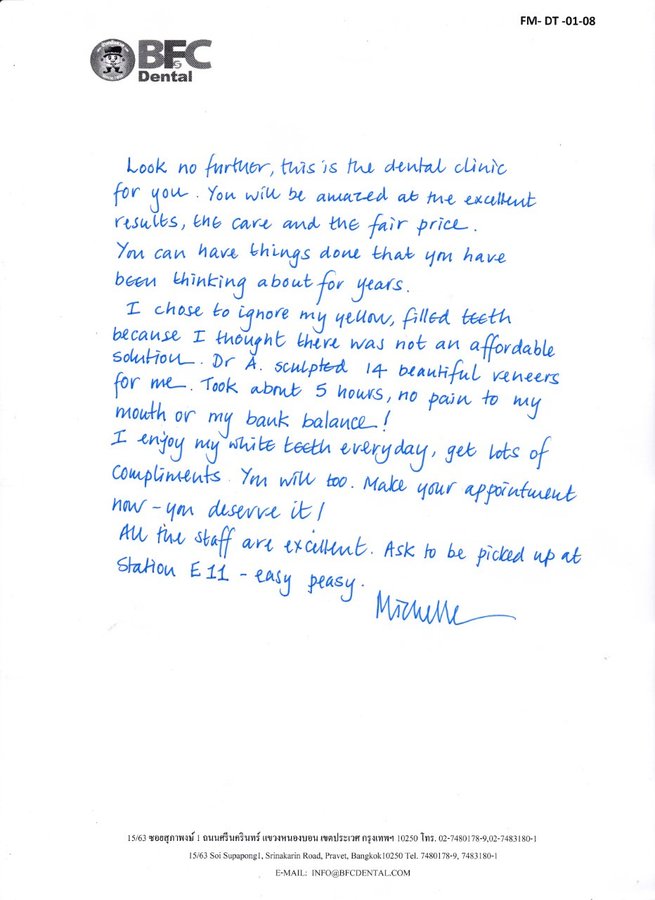 FM- DT -01-08
BFC
&
Dental
Look no further, this is the dental clinic
for you. You will be amazed at the excellent
results, the care and the fair price.
You can have things done that you have
been thinking about for years.
I chose to ignore my yellow, filled teeth
because I thought there was not an affordable
solution. Dr A. sculpted 14 beautiful veneers
for me. Took about 5 hours, no pain to my
mouth or my bank balance!
I enjoy my white teeth everyday, get lots of
compliments. You will too. Make your appointment
now - you deserve it!
All the staff are excellent. Ask to be picked up at
Station E11 - easy peasy.
Michelle
15/63 ซอยสุภาพงษ์ 1 ถนนศรีนครินทร์ แขวงหนองบอน เขตประเวศ กรุงเทพฯ 10250 โทร. 02-7480178-9,02-7483180-1
15/63 Soi Supapong1, Srinakarin Road, Pravet, Bangkok10250 Tel. 7480178-9, 7483180-1
E-MAIL: INFO@BFCDENTAL.COM